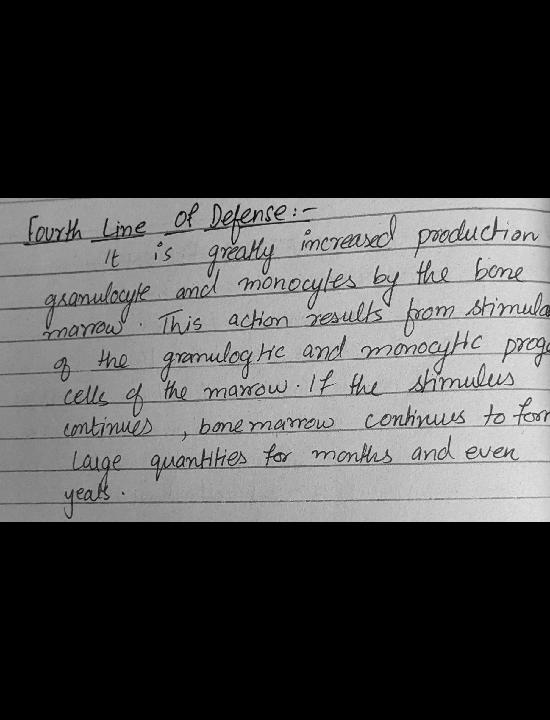 Fourth Line of Defense:-
It is greatly increased production
granulocyte and monocytes by the bone
marrow. This action results from stimula
of the granulogtic and monocytic prog
cells of the marrow. If the stimulus
continues, bone marrow continues to for
large quantities for months and even
years.